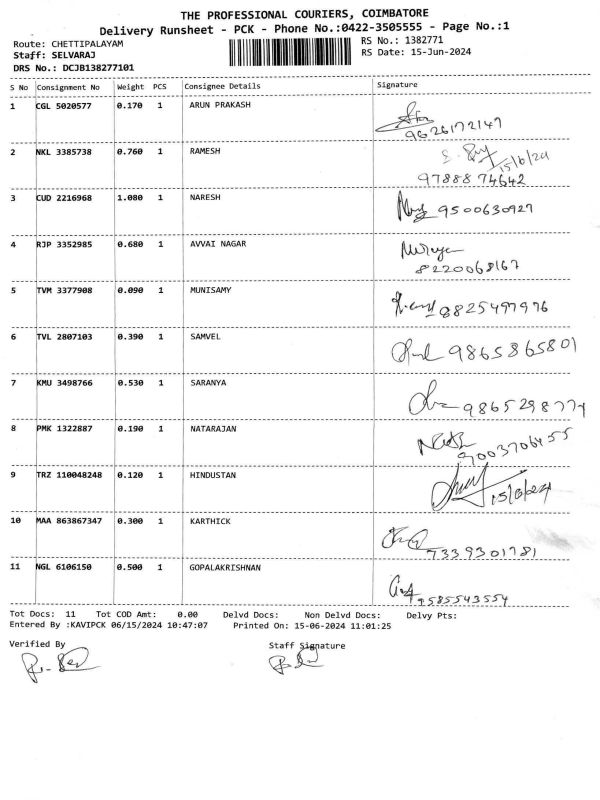 THE PROFESSIONAL COURIERS, COIMBATORE
Delivery Runsheet - PCK - Phone No.:0422-3505555 - Page No.:1
Route: CHETTIPALAYAM
Staff: SELVARAJ
DRS No.: DCJB138277101
RS No.: 1382771
RS Date: 15-Jun-2024
S No Consignment No Weight PCS Consignee Details Signature
1 CGL 5020577 0.170 1 ARUN PRAKASH
9626172147
2 NKL 3385738 0.760 1 RAMESH
15/6/24
97888 74642
3 CUD 2216968 1.080 1 NARESH 9500630927
4 RJP 3352985 0.680 1 AVVAI NAGAR
8220068167
5 TVM 3377908 0.090 1 MUNISAMY
8825497976
6 TVL 2807103 0.390 1 SAMVEL
9865865801
7 KMU 3498766 0.530 1 SARANYA
9865298774
8 PMK 1322887 0.190 1 NATARAJAN
9003706455
9 TRZ 110048248 0.120 1 HINDUSTAN
15/6/24
10 MAA 863867347 0.300 1 KARTHICK
7339301781
11 NGL 6106150 0.500 1 GOPALAKRISHNAN
9585543554
Tot Docs: 11 Tot COD Amt: 0.00 Delvd Docs: Non Delvd Docs: Delvy Pts:
Entered By :KAVIPCK 06/15/2024 10:47:07 Printed On: 15-06-2024 11:01:25
Verified By Staff Signature